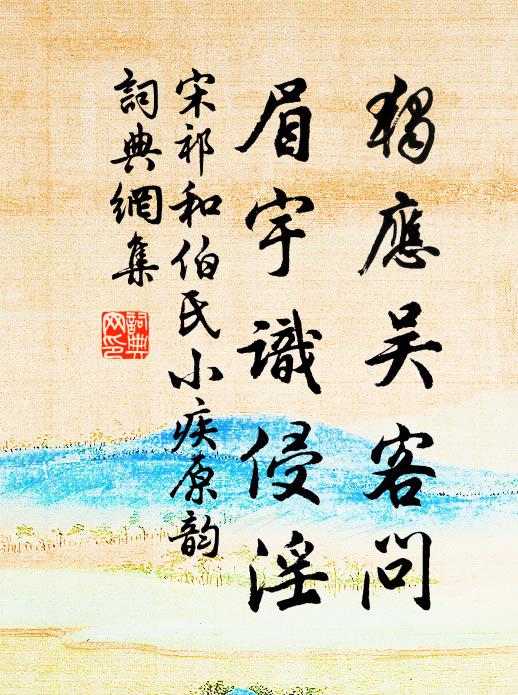 獨應吴客問
眉宇識侵淫
宋祁和伯氏小疾原韵
詞典網集
詞典网印